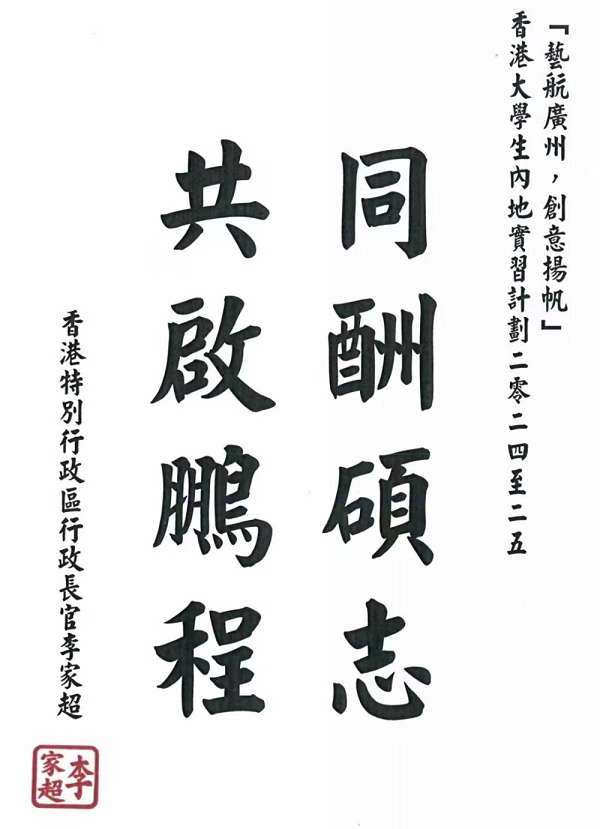 「藝航廣州，創意揚帆」
香港大學生內地實習計劃二零二四至二五
同酬碩志
共啟鵬程
香港特別行政區行政長官李家超
李家超